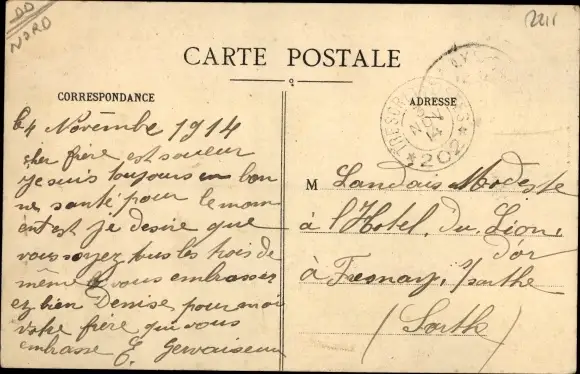 DD
NORD
2211
CARTE POSTALE
CORRESPONDANCE
ADRESSE
TRESOR
5
NOV
14
*202*
le 4 Novembre 1914
cher frère est soueur
je suis toujours en bon
ne santé pour le mom
ent est je desire que
vous soyez tous les trois de
même vous embrasser
ez bien Denise pour moi
votre frère qui vous
embrasse E. Gervaiseau
M Landais Modeste
à l'Hotel. Du. Lion.
D'or
à Fresnay, s/sarthe
(Sarthe)